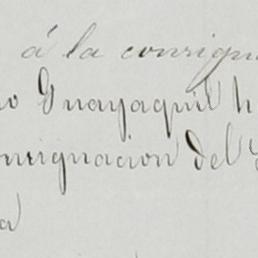 á la consign
Guayaquil h
onsignacion del